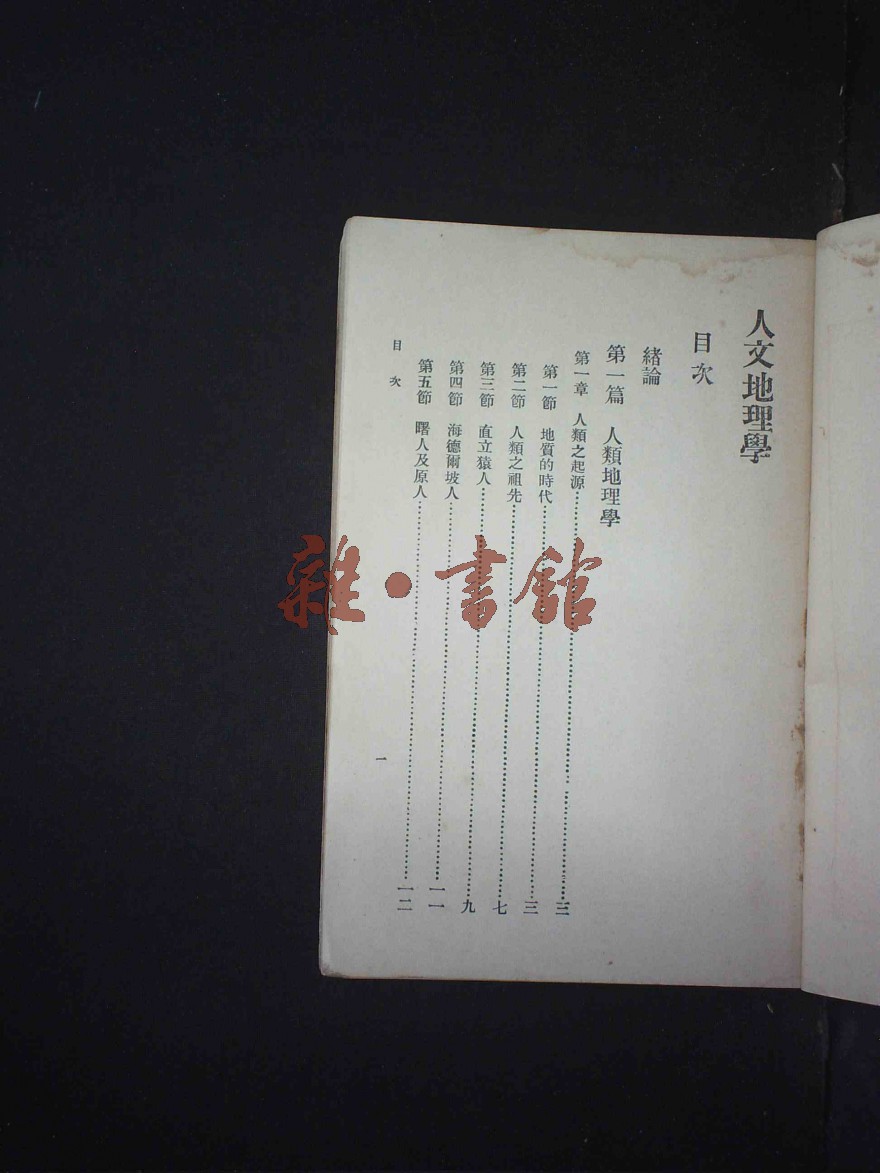 人文地理學
目次
緒論
第一篇　人類地理學
第一章　人類之起源……三
第一節　地質的時代……三
第二節　人類之祖先……七
第三節　直立猿人……九
第四節　海德爾坡人……一一
第五節　曙人及原人……一二
目次
一
雜·書館